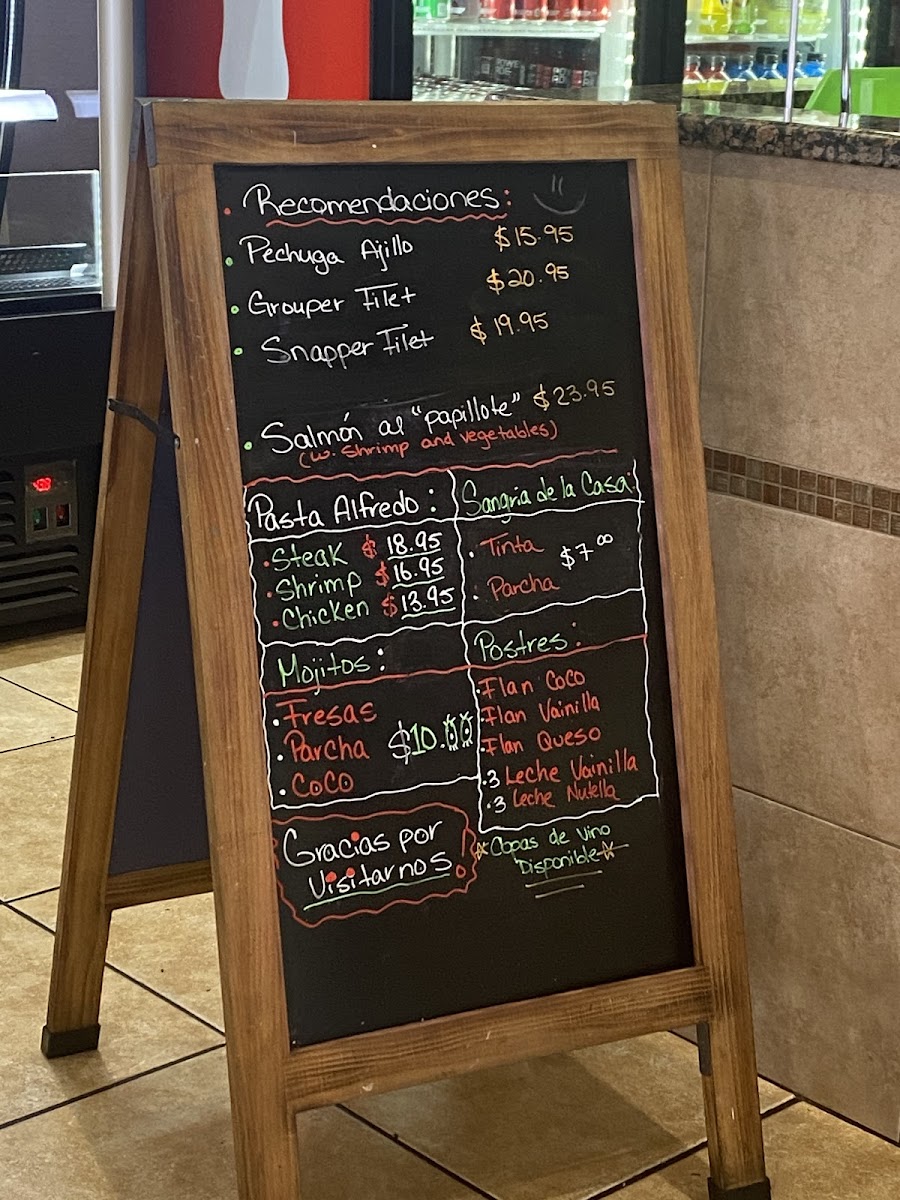 Recomendaciones:
Pechuga Ajillo $15.95
Grouper Filet $20.95
Snapper Filet $19.95
Salmón al "papillote" $23.95
(w. Shrimp and vegetables)
Pasta Alfredo:
Steak $18.95
Shrimp $16.95
Chicken $13.95
Sangria de la Casa:
Tinta $7.00
Parcha
Mojitos:
Fresas
Parcha $10.00
Coco
Postres:
Flan Coco
Flan Vainilla
Flan Queso
3 Leche Vainilla
3 Leche Nutella
Gracias por
Visitarnos.
Copas de vino
Disponible